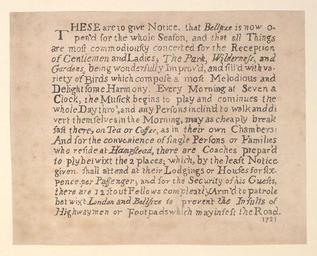 THESE are to give Notice, that Bellsize is now o-
pen'd for the whole Season, and that all Things
are most commodiously concerted for the Reception
of Gentlemen and Ladies, The Park, Wilderness, and
Gardens, being wonderfully improv'd, and fill'd with va-
riety of Birds which compose a most Melodious and
Delightsome Harmony. Every Morning at Seven a
Clock, the Musick begins to play and continues the
whole Day thro', and any Persons inclin'd to walk and di
vert themselves in the Morning, may as cheaply break
fast there, on Tea or Coffee, as in their own Chambers:
And for the convenience of single Persons or Families
who reside at Hampstead, there are Coaches prepar'd
to ply betwixt the 2 places; which, by the least Notice
given shall attend at their Lodgings or Houses for six-
pence per Passenger; and for the Security of his Guests,
there are 12 stout Fellows compleatly Arm'd to patrole
betwixt London and Bellsize to prevent the Insults of
Highwaymen or Footpads which may infest the Road.
1721